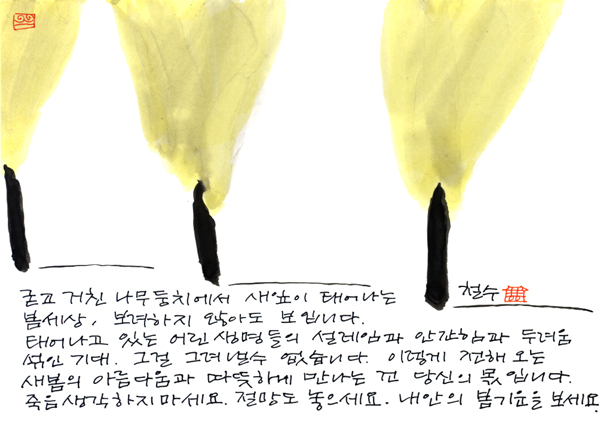 철수
굳고 거친 나무둥치에서 새잎이 태어나는
봄세상, 보려하지 않아도 보입니다.
태어나고 있는 어린 생명들의 설레임과 안간힘과 두려움
섞인 기대. 그걸 그려낼수 없습니다. 이렇게 전해 오는
새봄의 아름다움과 따뜻하게 만나는 건 당신의 몫입니다.
죽음생각하지마세요. 절망도 놓으세요. 내안의 봄기운을 보세요.